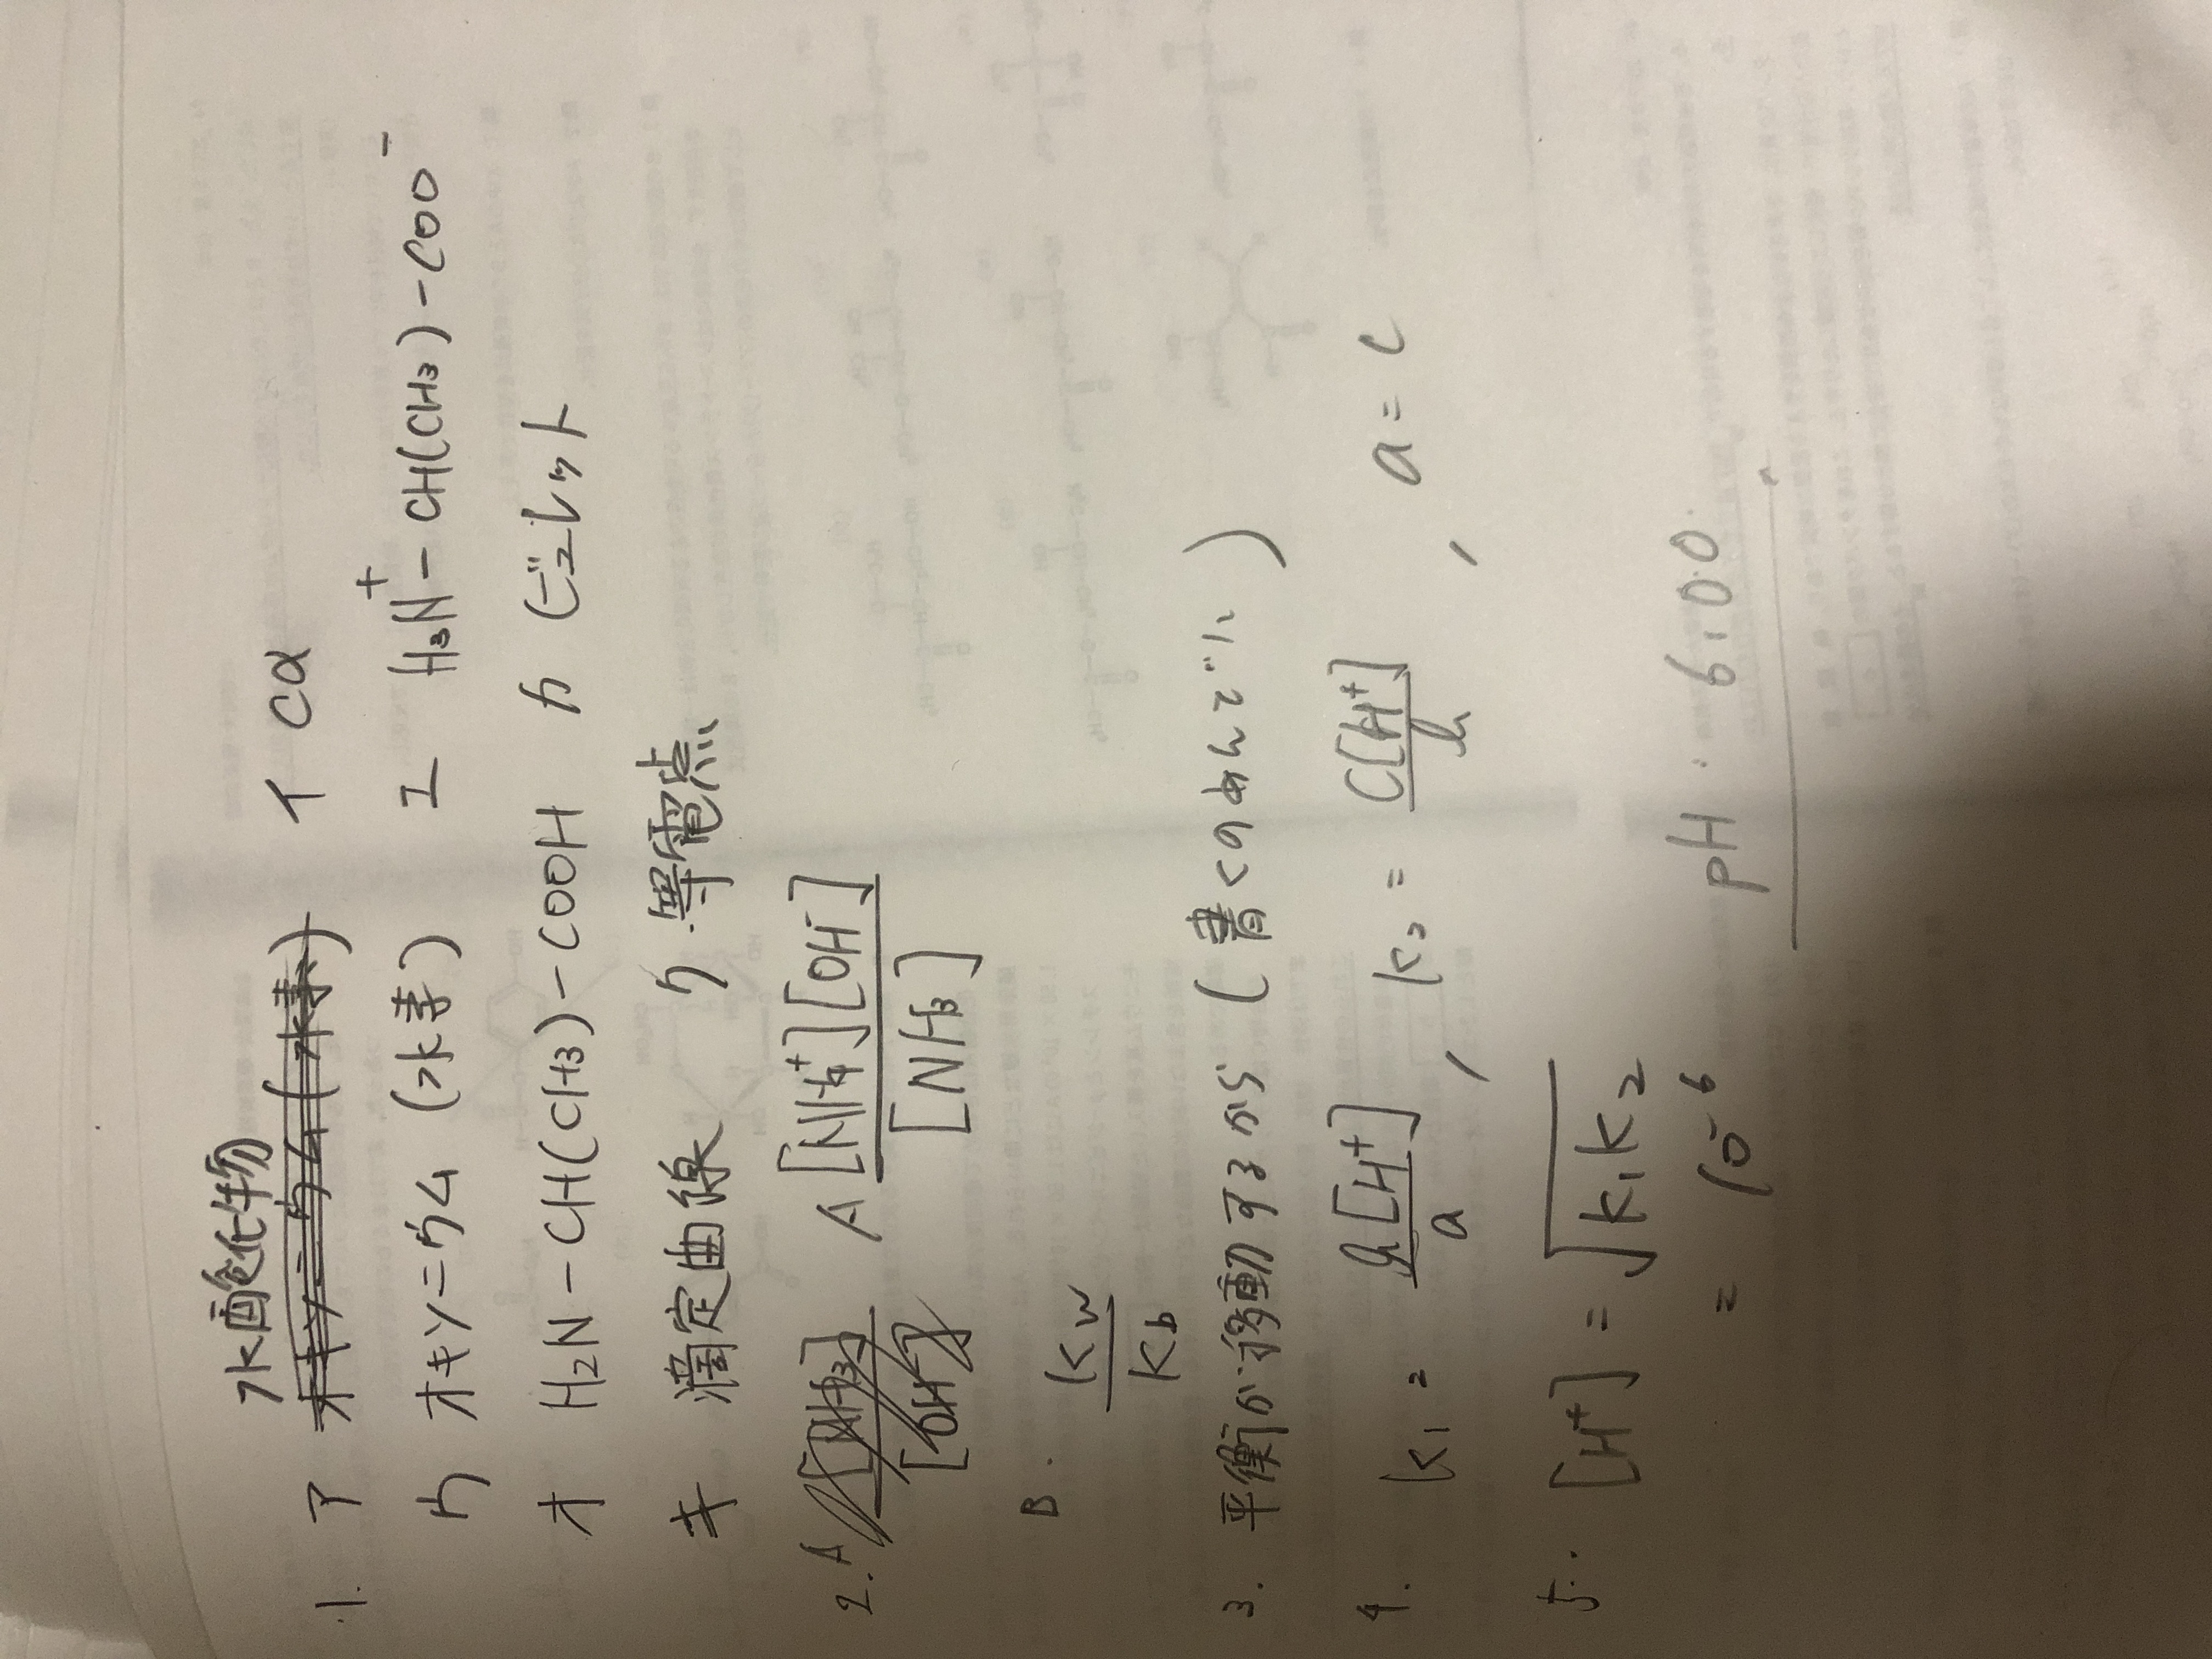 水酸化物
1. ア イ Cα
ウ オキソニウム (水素) エ H₃N⁺-CH(CH₃)-COO⁻
オ H₂N-CH(CH₃)-COOH カ ビュレット
キ 滴定曲線 ク 等電点
2. A A [NH₄⁺][OH⁻] / [NH₃]
B. Kw / Kb
3. 平衡が移動するから (書くのめんどい)
4. K₁ = b[H⁺] / a , K₂ = C[H⁺] / b , a = C
5. [H⁺] = √K₁K₂
= 10⁻⁶ pH : 6.00